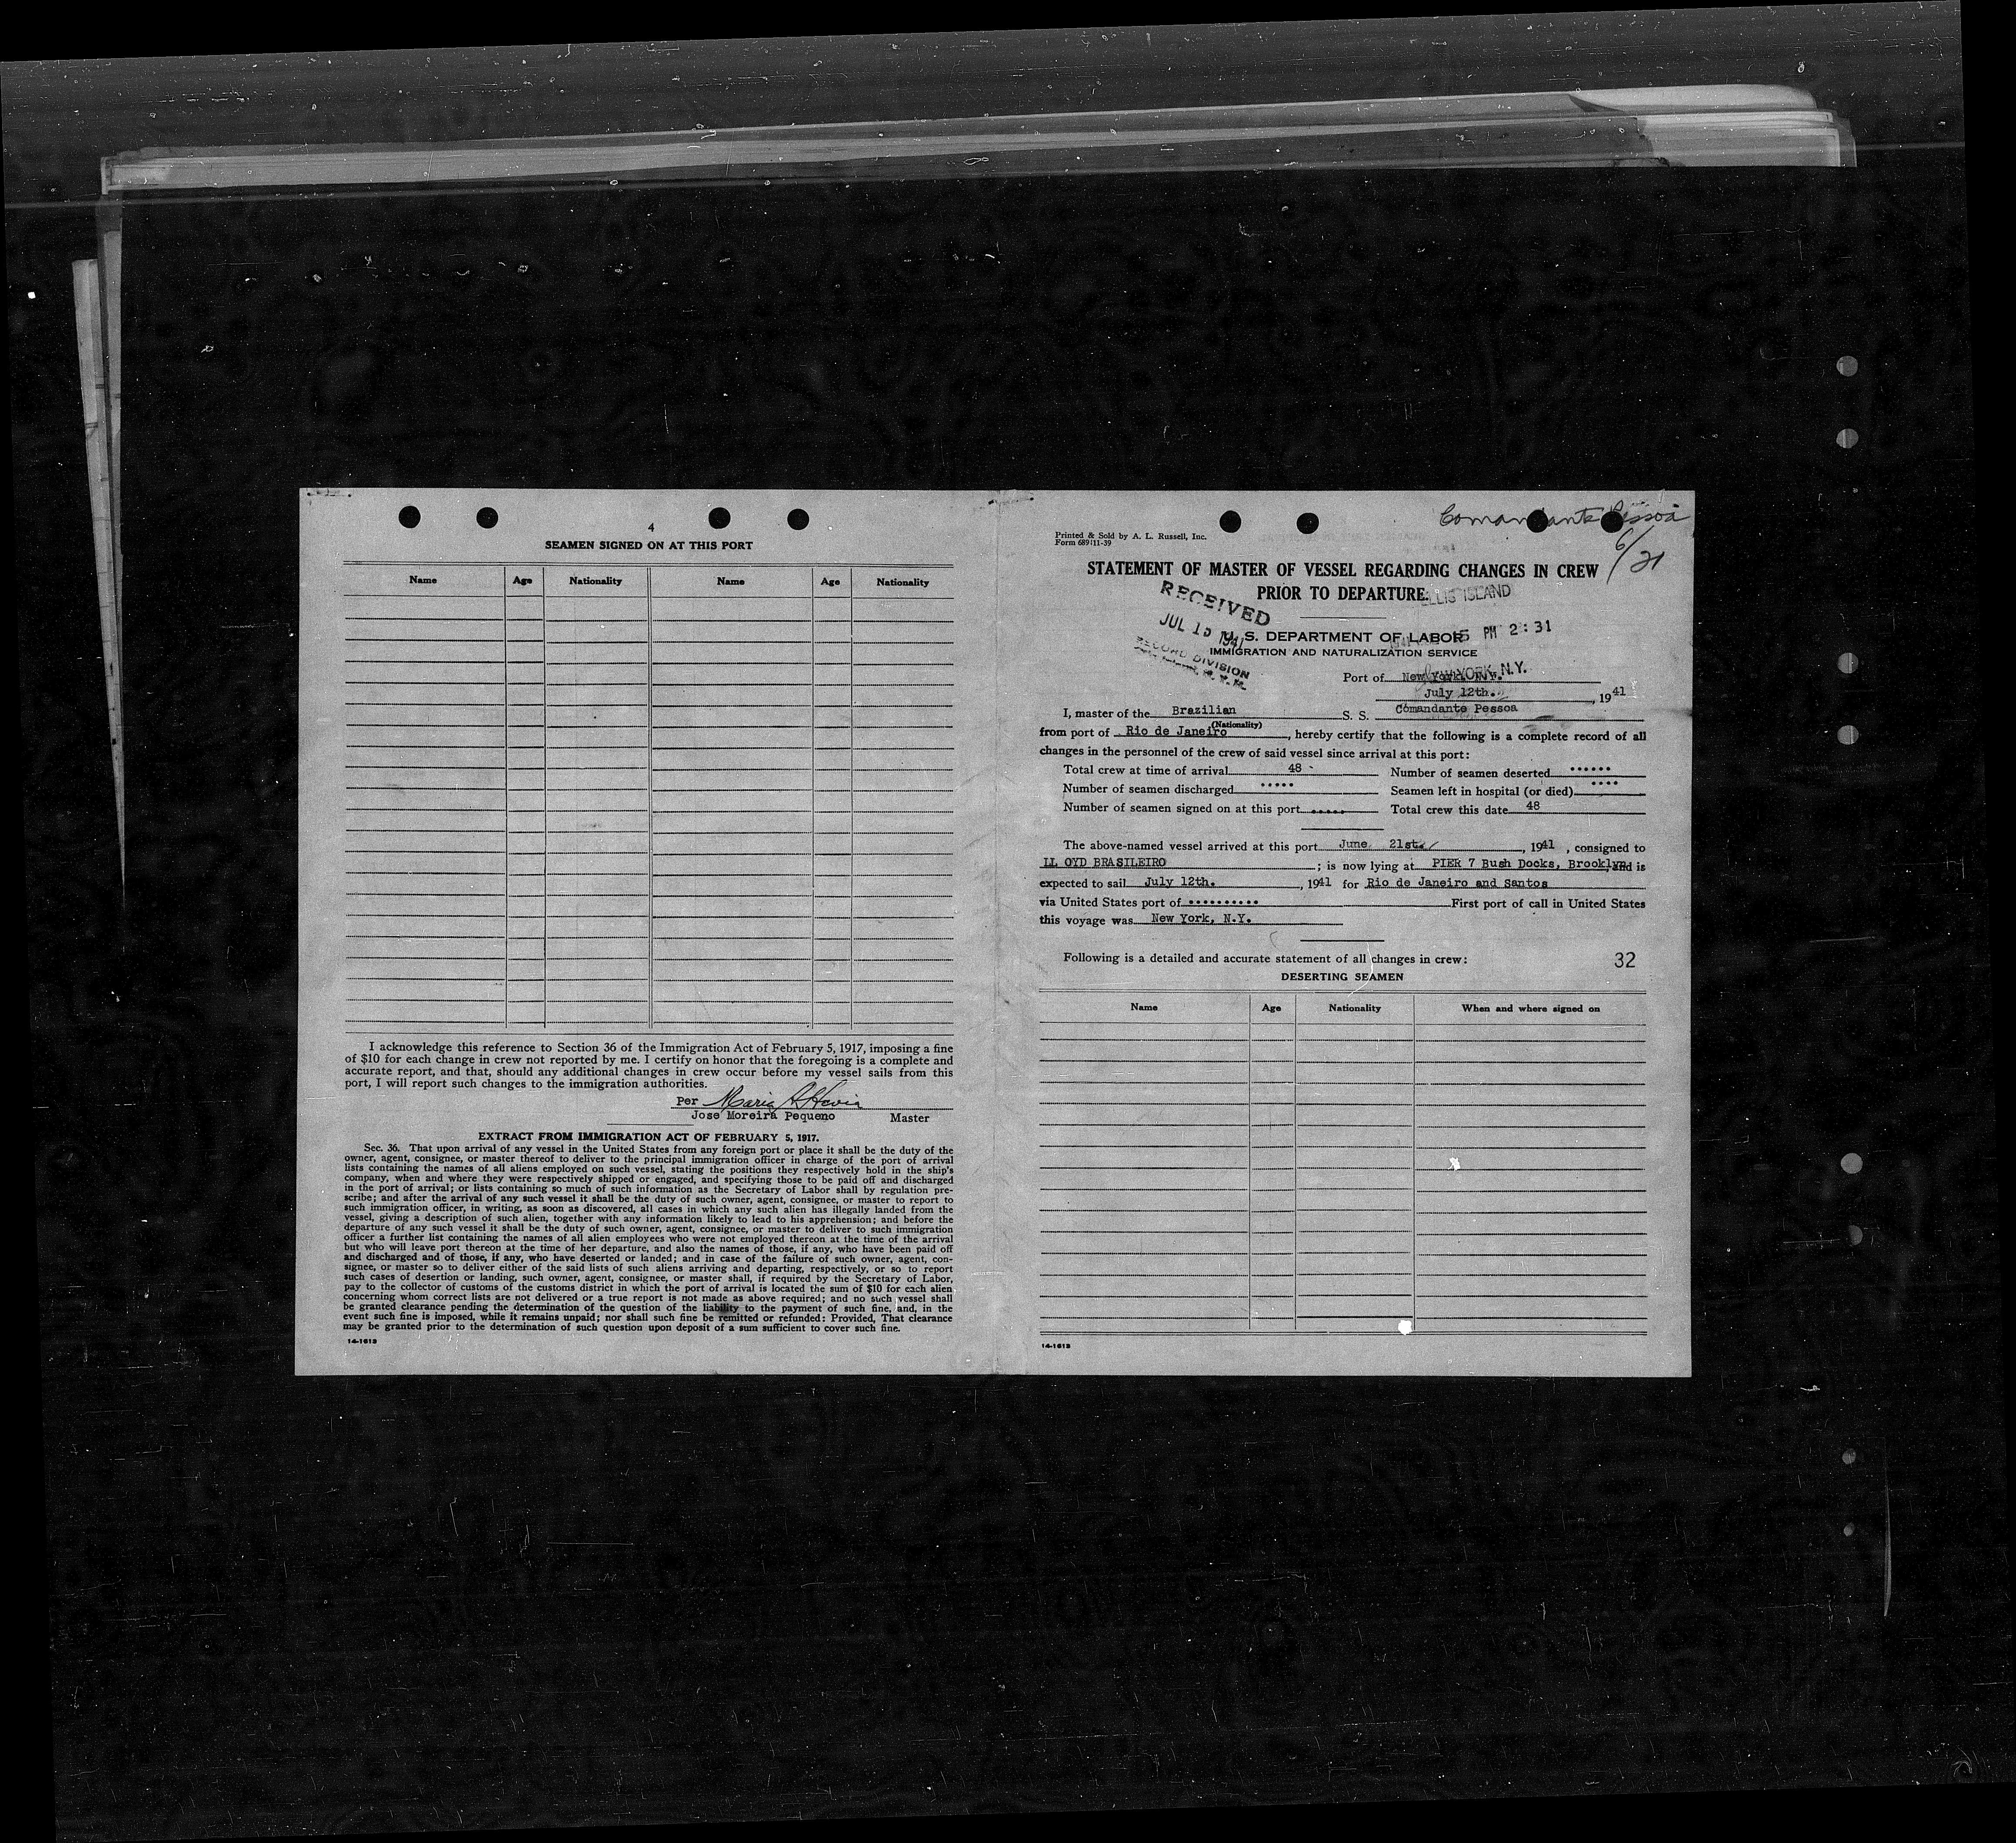 4
SEAMEN SIGNED ON AT THIS PORT
Name Age Nationality Name Age Nationality
I acknowledge this reference to Section 36 of the Immigration Act of February 5, 1917, imposing a fine
of $10 for each change in crew not reported by me. I certify on honor that the foregoing is a complete and
accurate report, and that, should any additional changes in crew occur before my vessel sails from this
port, I will report such changes to the immigration authorities.
Per
Jose Moreira Pequeno Master
EXTRACT FROM IMMIGRATION ACT OF FEBRUARY 5, 1917.
Sec. 36. That upon arrival of any vessel in the United States from any foreign port or place it shall be the duty of the
owner, agent, consignee, or master thereof to deliver to the principal immigration officer in charge of the port of arrival
lists containing the names of all aliens employed on such vessel, stating the positions they respectively hold in the ship's
company, when and where they were respectively shipped or engaged, and specifying those to be paid off and discharged
in the port of arrival; or lists containing so much of such information as the Secretary of Labor shall by regulation pre-
scribe; and after the arrival of any such vessel it shall be the duty of such owner, agent, consignee, or master to report to
such immigration officer, in writing, as soon as discovered, all cases in which any such alien has illegally landed from the
vessel, giving a description of such alien, together with any information likely to lead to his apprehension; and before the
departure of any such vessel it shall be the duty of such owner, agent, consignee, or master to deliver to such immigration
officer a further list containing the names of all alien employees who were not employed thereon at the time of the arrival
but who will leave port thereon at the time of her departure, and also the names of those, if any, who have been paid off
and discharged and of those, if any, who have deserted or landed; and in case of the failure of such owner, agent, con-
signee, or master so to deliver either of the said lists of such aliens arriving and departing, respectively, or so to report
such cases of desertion or landing, such owner, agent, consignee, or master shall, if required by the Secretary of Labor,
pay to the collector of customs of the customs district in which the port of arrival is located the sum of $10 for each alien
concerning whom correct lists are not delivered or a true report is not made as above required; and no such vessel shall
be granted clearance pending the determination of the question of the liability to the payment of such fine, and, in the
event such fine is imposed, while it remains unpaid; nor shall such fine be remitted or refunded: Provided, That clearance
may be granted prior to the determination of such question upon deposit of a sum sufficient to cover such fine.
14-1613
Comandante Pessoa
6/21
Printed & Sold by A. L. Russell, Inc.
Form 689-11-39
STATEMENT OF MASTER OF VESSEL REGARDING CHANGES IN CREW
PRIOR TO DEPARTURE.
ELLIS ISLAND
RECEIVED
JUL 15 1941
RECORD DIVISION
U. S. DEPARTMENT OF LABOR
PM 2:31
IMMIGRATION AND NATURALIZATION SERVICE
Port of New York, N.Y.
July 12th. , 1941
I, master of the Brazilian S. S. Comandante Pessoa
(Nationality)
from port of Rio de Janeiro , hereby certify that the following is a complete record of all
changes in the personnel of the crew of said vessel since arrival at this port:
Total crew at time of arrival 48 Number of seamen deserted ......
Number of seamen discharged ..... Seamen left in hospital (or died) ....
Number of seamen signed on at this port ..... Total crew this date 48
The above-named vessel arrived at this port June 21st. , 1941 , consigned to
LL OYD BRASILEIRO ; is now lying at PIER 7 Bush Docks, Brooklyn, and is
expected to sail July 12th. , 1941 for Rio de Janeiro and Santos
via United States port of .......... First port of call in United States
this voyage was New York, N.Y.
Following is a detailed and accurate statement of all changes in crew:
32
DESERTING SEAMEN
Name Age Nationality When and where signed on
14-1613